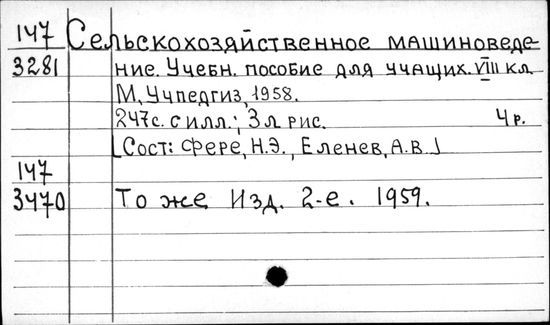 147 Сельскохозяйственное машиноведе-
3281 ние. Учебн. пособие для учащих. VIII кл.
М, Учпедгиз, 1958.
247с. с илл.; 3л рис. 4р.
[Сост: Фере, Н.Э., Еленев, А.В.]
147
3470 То же Изд. 2-е. 1959.